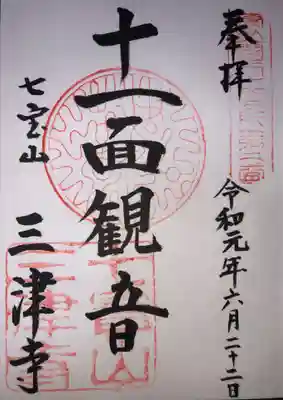 奉拝
令和元年六月二十二日
十一面観音
七宝山
三津寺